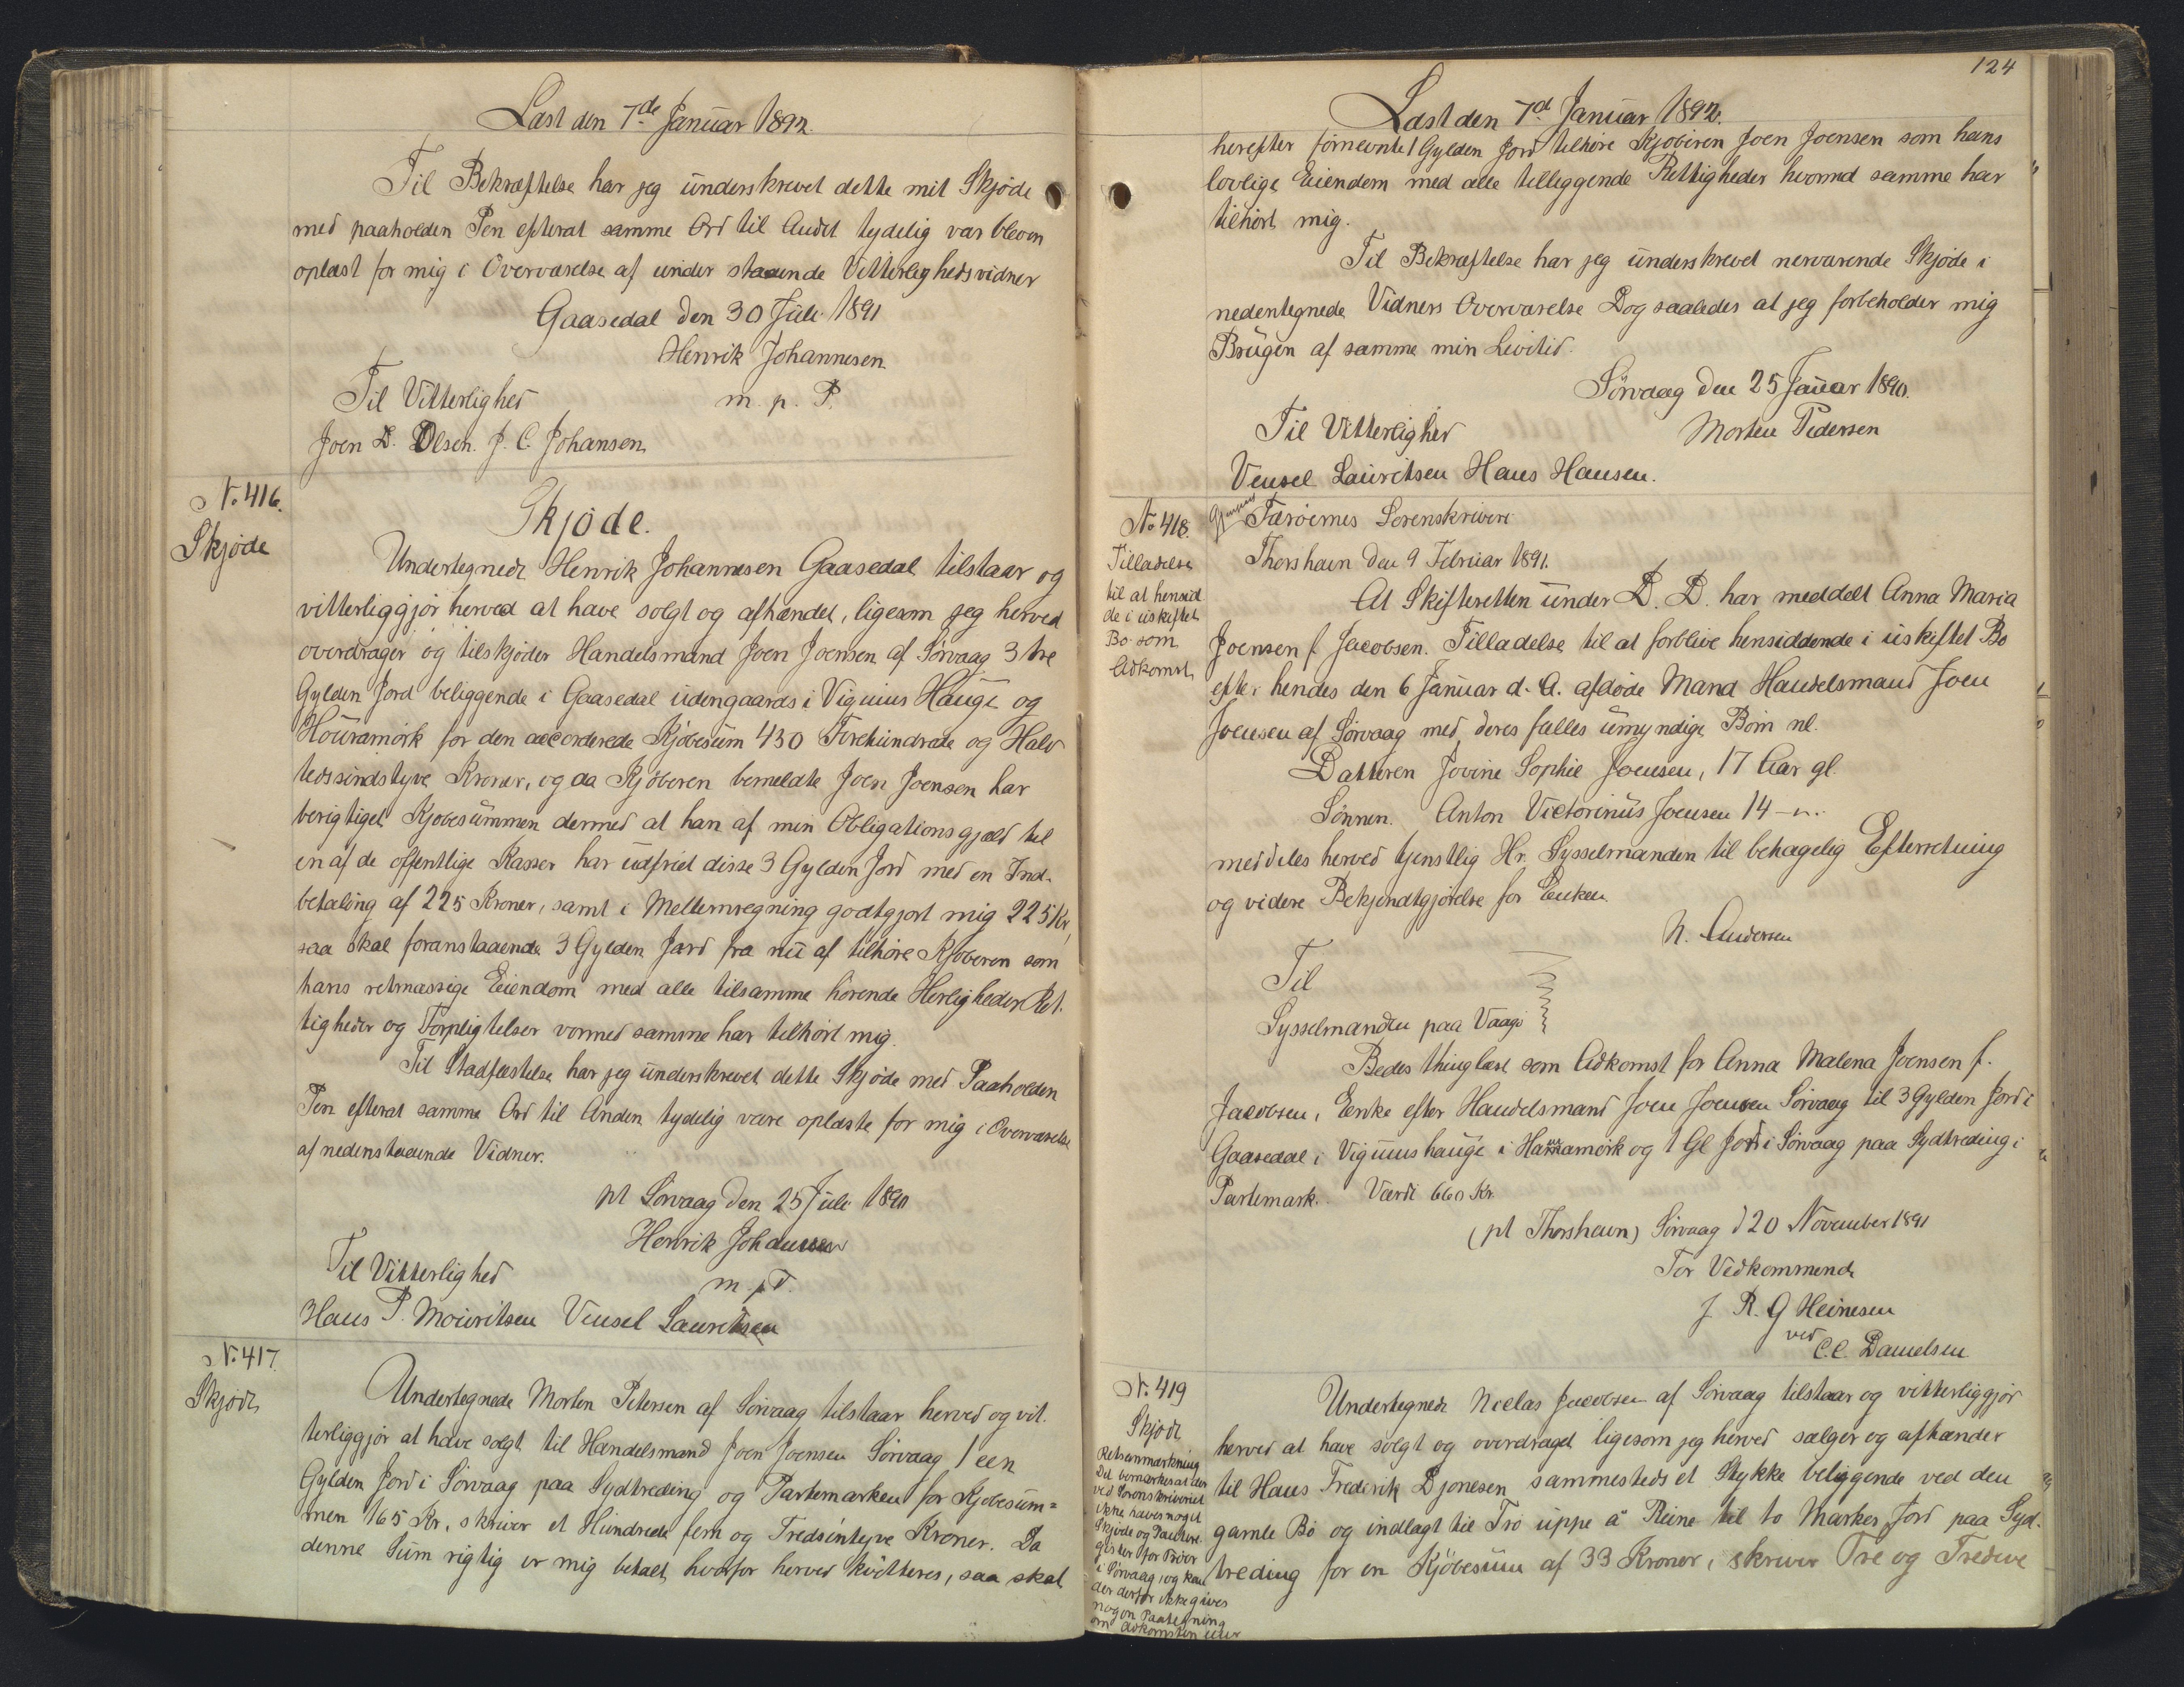 Læst den 7de Januar 1892.
Til Bekræftelse har jeg underskrevet dette mit Skjøde
med paaholden Pen efterat samme Ord til Andet tydelig var bleven
oplæst for mig i Overværelse af under staaende Vitterlighedsvidner
Gaasedal den 30 Juli 1891
Henrik Johannesen
Til Vitterlighed m. p. P.
Joen D. Olsen. J. C. Johansen
No. 416.
Skjøde
Skjøde.
Undertegnede Henrik Johannesen Gaasedal tilstaar og
vitterliggjør herved at have solgt og afhændet, ligesom jeg herved
overdrager og tilskjøder Handelsmand Joen Joensen af Sørvaag 3 tre
Gylden Jord beliggende i Gaasedal udengaards i Viguius Hauge og
Houramørk for den accorderede Kjøbesum 430 Firehundrede og Halv
tedssindstyve Kroner, og da Kjøberen bemeldte Joen Joensen har
berigtiget Kjøbesummen dermed at han af min Obligationsgjæld til
en af de offentlige Kasser har udfriet disse 3 Gylden Jord med en Ind-
betaling af 225 Kroner, samt i Mellemregning godtgjort mig 225 Kr,
saa skal foranstaaende 3 Gylden Jord fra nu af tilhøre Kjøberen som
hans retmæssige Eiendom med alle tilsamme hørende Herligheder Ret-
tigheder og Forpligtelser vormed samme har tilhørt mig.
Til Stadfæstelse har jeg underskrevet dette Skjøde med Paaholden
Pen efterat samme Ord til Anden tydelig være oplæste for mig i Overværelse
af nedenstaaende Vidner.
pt Sørvaag den 25 Juli 1890
Henrik Johannesen
Til Vitterlighed m. p. P.
Hans P. Mouritsen Vensel Lauritsen
No. 417.
Skjøde
Undertegnede Morten Petersen af Sørvaag tilstaar herved og vit-
terliggjør at have solgt til Handelsmand Joen Joensen Sørvaag 1 een
Gylden Jord i Sørvaag paa Sydtreding og Partemarken for Kjøbesum=
men 165 Kr. skriver et Hundrede fem og Tredsintyve Kroner. Da
denne Sum rigtig er mig betalt, hvorfor herved kvitteres, saa skal
124
Læst den 7d Januar 1892.
herefter førnevnte 1 Gylden Jord tilhøre Kjøberen Joen Joensen som hans
lovlige Eiendom med alle tilleggende Rettigheder hvormed samme har
tilhørt mig.
Til Bekræftelse har jeg underskrevet nerværende Skjøde i
nedentegnede Vidners Overværelse Dog saaledes at jeg forbeholder mig
Brugen af samme min Levitid.
Sørvaag den 25 Januar 1890.
Til Vitterlighed Morten Pedersen
Vensel Lauritsen Hans Hansen.
No. 418.
Tilladelse
til at hensid
de i uskiftet
Bo som
Adkomst
Færøernes Sorenskriveri
Thorshavn den 9 Februar 1891.
At Skifteretten under D. D. har meddelt Anna Maria
Joensen f. Jacobsen. Tilladelse til at forblive hensiddende i uskiftet Bo
efter hendes den 6 Januar d. A. afdøde Mand Handelsmand Joen
Joensen af Sørvaag med deres fælles umyndige Børn nl.
Datteren Jovine Sophie Joensen, 17 Aar gl.
Sønnen. Anton Victorinus Joensen 14 — " .
meddeles herved tjenstlig Hr. Sysselmanden til behagelig Efterretning
og videre Bekjendtgjørelse for Enken.
N. Andersen
Til
Sysselmanden paa Vaagø
Bedes thinglæst som Adkomst for Anna Malena Joensen f.
Jacobsen, Enke efter Handelsmand Joen Joensen Sørvaag til 3 Gylden Jord i
Gaasedal i Viguius hauge i Hauramørk og 1 Gl Jord i Sørvaag paa Sydtreding i
Partemark. Værdi 660 Kr.
(pt Thorshavn) Sørvaag d 20 November 1891
For Vedkommende
J. R. G Heinesen
ved
C. C. Danielsen
No. 419
Skjøde
Retsanmærkning
Det bemærkes at der
ved Sorenskriveriet
ikke haves noget
Skjøde og Pantere-
gister for Bøer
i Sørvaag, og kan
der derfor ikke gives
nogen Paategning
om Adkomsten
Undertegnede Niclas Jacobsen af Sørvaag tilstaar og vitterliggjør
herved at have solgt og overdraget ligesom jeg herved sælger og afhænder
til Hans Fredirik Djonesen sammesteds et Stykke beliggende ved den
gamle Bø og indlagt til Trø uppe a Reine til to Marker Jord paa Syd-
treding for en Kjøbesum af 33 Kroner, skriver Tre og Tredive